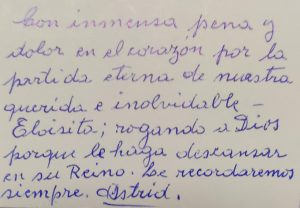 Con inmensa pena y
dolor en el corazón por la
partida eterna de nuestra
querida e inolvidable -
Eloisita; rogando a Dios
porque le haga descansar
en su Reino. Le recordaremos
siempre. Astrid.